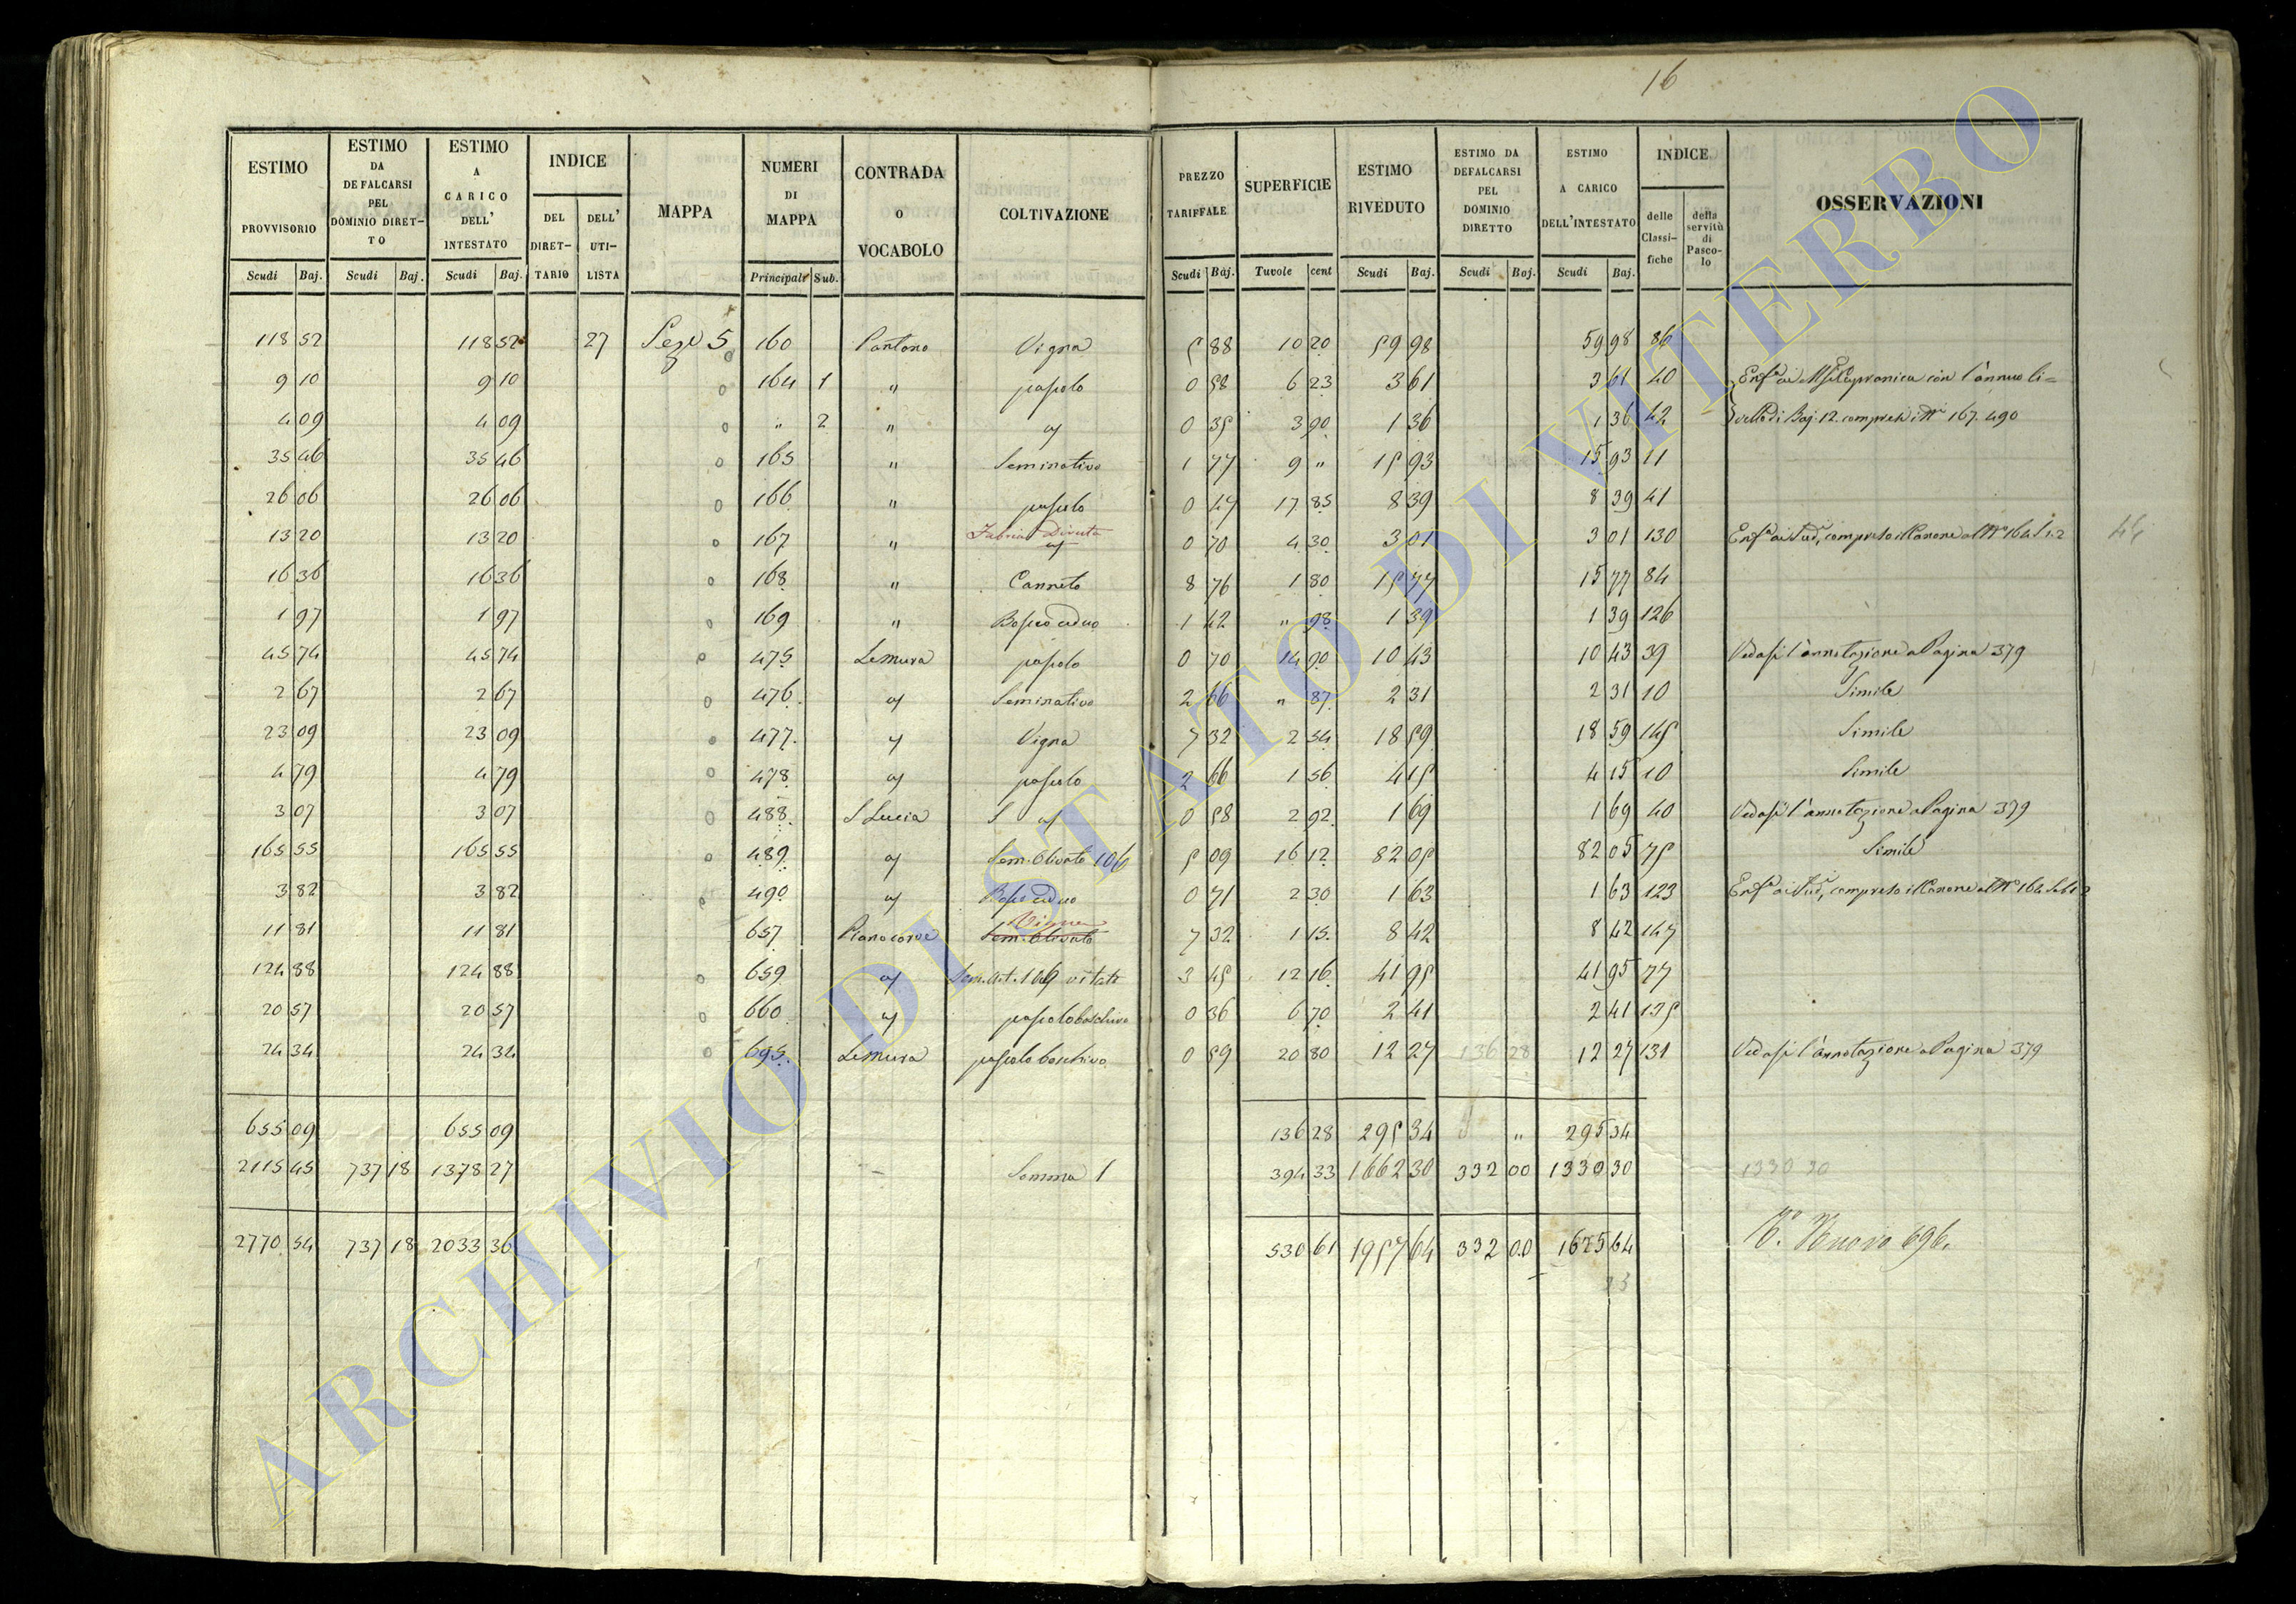 16
ESTIMO PROVVISORIO Scudi Baj.
ESTIMO DA DEFALCARSI PEL DOMINIO DIRETTO Scudi Baj.
ESTIMO A CARICO DELL' INTESTATO Scudi Baj.
INDICE DEL DIRETTARIO DELL' UTILISTA
MAPPA
NUMERI DI MAPPA Principali Sub.
CONTRADA O VOCABOLO
COLTIVAZIONE
PREZZO TARIFFALE Scudi Baj.
SUPERFICIE Tavole cent
ESTIMO RIVEDUTO Scudi Baj.
ESTIMO DA DEFALCARSI PEL DOMINIO DIRETTO Scudi Baj.
ESTIMO A CARICO DELL'INTESTATO Scudi Baj.
INDICE delle Classifiche della servitù di Pascolo
OSSERVAZIONI
118 52 118 52 27 5 160 Pantano Vigna 5 88 10 20 59 98 59 98 86
9 10 9 10 164 1 " pascolo 0 58 6 23 3 61 3 61 40 con l'annuo li=
4 09 4 09 " 2 " 0 35 3 90 1 36 1 36 42 di Baj. 12. compresi i Nri 167. 490
35 46 35 46 165 " Seminativo 1 77 9 " 15 93 15 93 11
26 06 26 06 166 " pascolo 0 47 17 85 8 39 8 39 41
13 20 13 20 167 " Diruta 0 70 4 30 3 01 3 01 130 compreso il Canone al N° 164
16 36 16 36 168 " Canneto 8 76 1 80 15 77 15 77 84
1 97 1 97 169 " Bosco ceduo 1 42 " 98 1 39 1 39 126
45 74 45 74 475 Le Mura pascolo 0 70 14 90 10 43 10 43 39 Vedasi l'annotazione a Pagina 379
2 67 2 67 476 Seminativo 2 66 " 87 2 31 2 31 10 Simile
23 09 23 09 477 Vigna 7 32 2 54 18 59 18 59 145 Simile
4 79 4 79 478 pascolo 2 66 1 56 4 15 4 15 10 Simile
3 07 3 07 488 S Lucia 0 58 2 92 1 69 1 69 40 Vedasi l'annotazione a Pagina 379
165 55 165 55 489 Sem. Olivato 106 5 09 16 12 82 05 82 05 75 Simile
3 82 3 82 490 Bosco ceduo 0 71 2 30 1 63 1 63 123 compreso il Canone al N° 164
11 81 11 81 657 Vigna Sem. Olivato 7 32 1 15 8 42 8 42 147
124 88 124 88 659 vitato 3 45 12 16 41 95 41 95 77
20 57 20 57 660 pascolo boschivo 0 36 6 70 2 41 2 41 125
24 34 24 34 695 Le Mura pascolo boschivo 0 59 20 80 12 27 136 28 12 27 131 Vedasi l'annotazione a Pagina 379
655 09 655 09 136 28 295 34 " 295 34
2115 45 737 18 1378 27 Somma 1 394 33 1662 30 332 00 1330 30 1330 30
2770 54 737 18 2033 36 530 61 1957 64 332 00 1625 64 Nuovo 696.
ARCHIVIO DI STATO DI VITERBO